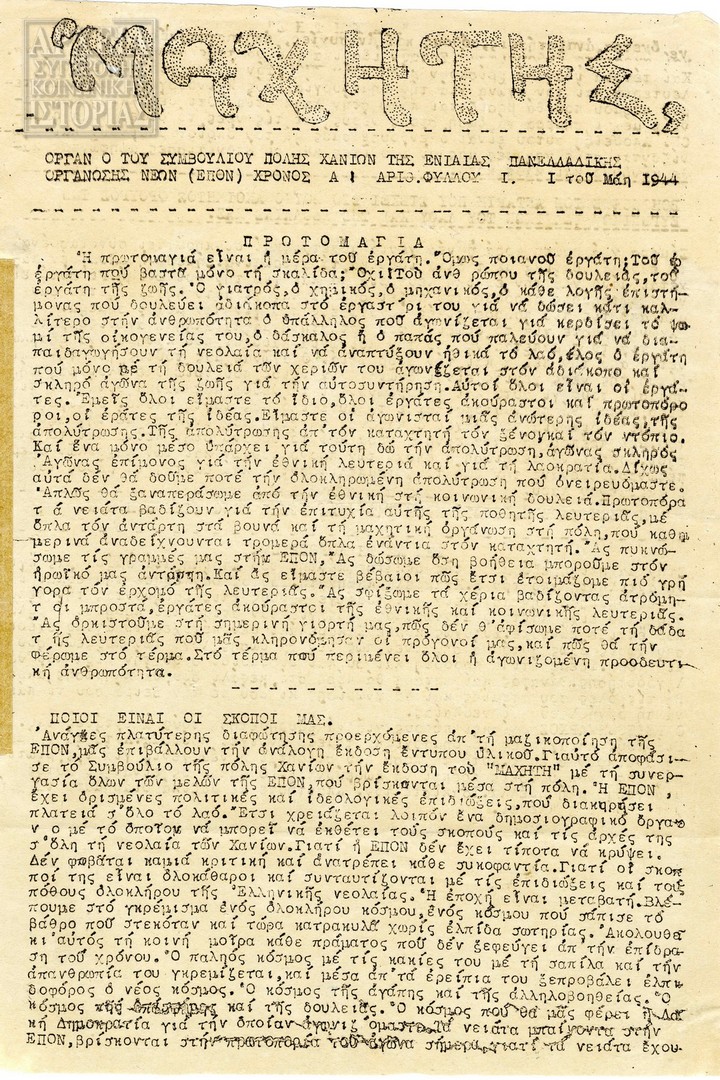 ΑΡΧΕΙΑ
ΣΥΓΧΡΟΝΗΣ
ΚΟΙΝΩΝΙΚΗΣ
ΙΣΤΟΡΙΑΣ
"ΜΑΧΗΤΗΣ"
ΟΡΓΑΝ Ο ΤΟΥ ΣΥΜΒΟΥΛΙΟΥ ΠΟΛΗΣ ΧΑΝΙΩΝ ΤΗΣ ΕΝΙΑΙΑΣ ΠΑΝΕΛΛΑΔΙΚΗΣ
ΟΡΓΑΝΩΣΗΣ ΝΕΩΝ (ΕΠΟΝ) ΧΡΟΝΟΣ Α! ΑΡΙΘ.ΦΥΛΛΟΥ Ι. Ι τοῦ Μάη 1944
ΠΡΩΤΟΜΑΓΙΑ
Ἡ πρωτομαγιά εἶναι ἡ μέρα τοῦ ἐργάτη. Ὅμως ποιανοῦ ἐργάτη;Τοῦ ἐ
ἐργάτη πού βαστᾶ μόνο τή σκαλίδα;Ὄχι!Τοῦ ἀνθ ρώπου τῆς δουλειᾶς,τοῦ
ἐργάτη τῆς ζωῆς. Ὁ γιατρός,ὁ χημικός,ὁ μηχανικός,ὁ κάθε λογῆς ἐπιστή-
μονας πού δουλεύει ἀδιάκοπα στό ἐργαστήρι του γιά νά δώσει κάτι καλ-
λίτερο στήν ἀνθρωπότητα ὁ ὑπάλληλος πού ἀγωνίζεται γιά κερδίσει τό ψω
μί τῆς οἰκογενείας του,ὁ δάσκαλος ἤ ὁ παπάς πού παλεύουν γιά νά δια-
παιδαγωγήσουν τή νεολαία καί νά ἀναπτύξουν ἠθικά τό λαό,τέλος ὁ ἐργάτη
πού μόνο με τή δουλειά τῶν χεριῶν του ἀγωνίζεται στόν ἀδιάκοπο καί
σκληρό ἀγώνα τῆς ζωῆς γιά τήν αὐτοσυντήρηση.Αὐτοί ὅλοι εἶναι οἱ ἐργά-
τες. Ἐμεῖς ὅλοι εἴμαστε τό ἴδιο,ὅλοι ἐργάτες ἀκούραστοι καί πρωτοπόρο
ροι,οἱ ἐράτες τῆς ἰδέας.Εἴμαστε οἱ ἀγωνισταί μιᾶς ἀνώτερης ἰδέας,τῆς
ἀπολύτρωσης.Τῆς ἀπολύτρωσης ἀπ'τόν καταχτητή τόν ξένο,καί τόν ντόπιο.
Καί ἕνα μόνο μέσο ὑπάρχει γιά τούτη δῶ τήν ἀπολύτρωση,ἀγώνας σκληρός
.Ἀγώνας ἐπίμονος γιά τήν ἐθνική λευτεριά καί γιά τή λαοκρατία.Δίχως
αὐτά δέν θά δοῦμε ποτέ τήν ὁλοκληρωμένη ἀπολύτρωση πού ὀνειρευόμαστε.
Ἁπλῶς θά ξαναπεράσωμε ἀπό τήν ἐθνική στή κοινωνική δουλεία.Πρωτοπόρα
τ ά νειάτα βαδίζουν γιά τήν ἐπιτυχία αὐτῆς τῆς ποθητῆς λευτεριᾶς,μέ
ὅπλα τόν ἀντάρτη στά βουνά καί τή μαχητική ὀργάνωση στή πόλη,πού καθη
μερινά ἀναδείχνουνται τρομερά ὅπλα ἐνάντια στόν καταχτητή. Ἄς πυκνώ-
σωμε τίς γραμμές μας στήν ΕΠΟΝ, Ἄς δώσωμε ὅση βοήθεια μποροῦμε στόν
ἡρωϊκό μας ἀντάρτη.Καί ἄς εἴμαστε βέβαιοι πῶς ἔτσι ἑτοιμάζομε πιό γρή
γορα τόν ἐρχομό τῆς λευτεριᾶς. Ἄς σφίξωμε τά χέρια βαδίζοντας ἀτρόμη-
τ οι μπροστά,ἐργάτες ἀκούραστοι τῆς ἐθνικῆς καί κοινωνικῆς λευτεριᾶς.
Ἄς ὁρκιστοῦμε στή σημερινή γιορτή μας,πῶς δέν θ'ἀφίσωμε ποτέ τή δάδα
τ ῆς λευτεριᾶς πού μᾶς κληρονόμησαν οἱ πρόγονοί μας,καί πῶς θά τήν
φέρωμε στό τέρμα.Στό τέρμα πού περιμένει ὅλοι ἡ ἀγωνιζομένη προοδευτι-
κή ἀνθρωπότητα.
ΠΟΙΟΙ ΕΙΝΑΙ ΟΙ ΣΚΟΠΟΙ ΜΑΣ.
Ἀνάγκες πλατύτερης διαφώτησης προερχόμενες ἀπ'τή μαζικοποίηση τῆς
ΕΠΟΝ,μᾶς ἐπιβάλλουν τήν ἀνάλογη ἔκδοση ἔντυπου ὑλικοῦ.Γιαυτό ἀποφάσι-
σε τό Συμβούλιο τῆς πόλης Χανίων τήν ἔκδοση τοῦ "ΜΑΧΗΤΗ" μέ τή συνερ-
γασία ὅλων τῶν μελῶν τῆς ΕΠΟΝ,πού βρίσκονται μέσα στή πόλη. Ἡ ΕΠΟΝ
ἔχει ὁρισμένες πολιτικές καί ἰδεολογικές ἐπιδιώξεις,πού διακηρύσει
πλατειά σ'ὅλο τό λαό. Ἔτσι χρειάζεται λοιπόν ἕνα δημοσιογραφικό ὄργα-
ν ο μέ τό ὁποῖον νά μπορεῖ νά ἐκθέτει τούς σκοπούς καί τίς ἀρχές της
σ'ὅλη τή νεολαία τῶν Χανίων.Γιατί ἡ ΕΠΟΝ δέν ἔχει τίποτα νά κρύψει.
Δέν φοβᾶται καμιά κριτική καί ἀνατρέπει κάθε συκοφαντία.Γιατί οἱ σκο-
ποί της εἶναι ὁλοκάθαροι καί συνταυτίζονται μέ τίς ἐπιδιώξεις καί τούς
πόθους ὁλοκλήρου τῆς Ἑλληνικῆς νεολαίας. Ἡ ἐποχή εἶναι μεταβατή.Βλέ-
πουμε στό γκρέμισμα ἑνός ὁλοκλήρου κόσμου,ἑνός κόσμου πού σάπισε τό
βάθρο πού στεκόταν καί τώρα κατρακυλᾶ χωρίς ἐλπίδα σωτηρίας. Ἀκολουθεῖ
κι'αὐτός τή κοινή μοίρα κάθε πράματος πού δέν ξεφεύγει ἀπ'τήν ἐπίδρα-
ση τοῦ χρόνου. Ὁ παληός κόσμος μέ τίς κακίες του μέ τή σαπίλα καί τήν
ἀπανθρωπία του γκρεμίζεται,καί μέσα ἀπ'τά ἐρείπια του ξεπροβάλει ἐλπι-
δοφόρος ὁ νέος κόσμος. Ὁ κόσμος τῆς ἀγάπης καί τῆς ἀλληλοβοηθείας. Ὁ
κόσμος τῆς καί τῆς δουλειᾶς. Ὁ κόσμος πού θά μᾶς φέρει ἡ Λαϊ
κή Δημοκρατία γιά τήν ὁποίαν ἀγωνιζ όμαστε.Τά νειάτα μπαίνοντα στήν
ΕΠΟΝ,βρίσκονται στήν πρωτοπορία τοῦ ἀγώνα σήμερα,γιατί τά νειάτα ἔχου-